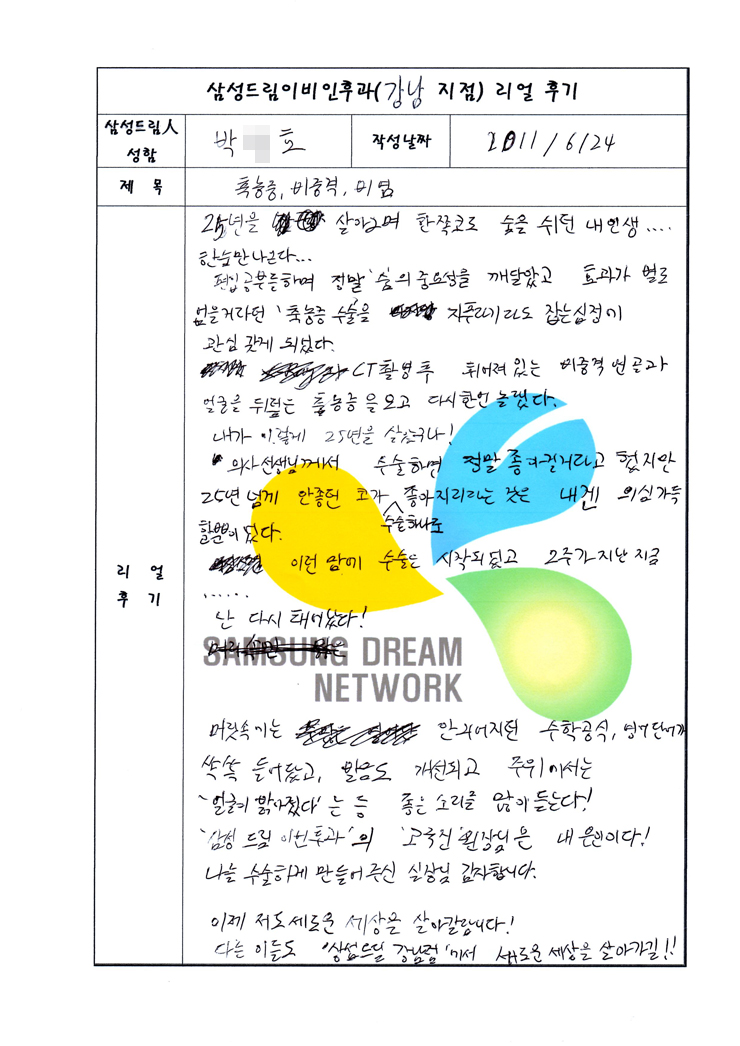 삼성드림이비인후과(강남 지점) 리얼 후기
삼성드림人 성함
박 호
작성날짜
2011/6/24
제 목
축농증, 비중격, 비염
리 얼 후 기
25년을 살아오며 한쪽코로 숨을 쉬던 내인생....
한숨만나온다...
편입공부를하며 정말 '숨'의 중요성을 깨달았고 효과가 별로
없을거라던 '축농증 수술'을 지푸라기라도 잡는심정이
관심 갖게 되었다.
CT촬영후 휘어져있는 비중격연골과
얼굴을 뒤덮는 축농증을보고 다시한번 놀랬다.
내가 이렇게 25년을 살았구나!
의사선생님께서 수술하면 정말 좋아질거라고 했지만
25년 넘게 안좋던 코가 좋아지리라는 것은 내겐 의심가득
수술하나로
할뿐이었다.
이런 맘에 수술은 시작되었고 2주가지난 지금
......
난 다시 태어났다!
SAMSUNG DREAM
NETWORK
머릿속에는 안외어지던 수학공식, 영어단어가
쏙쏙 들어왔고, 발음도 개선되고 주위에서는
'얼굴이 밝아졌다'는 등 좋은 소리를 많이듣는다!
'삼성 드림 이비인후과'의 원장님은 내 은인이다!
나를 수술하게 만들어주신 실장님 감사합니다.
이제 저도새로운 세상을 살아갈랍니다!
다른 이들도 '삼성드림 강남점'에서 새로운 세상을 살아가길!!